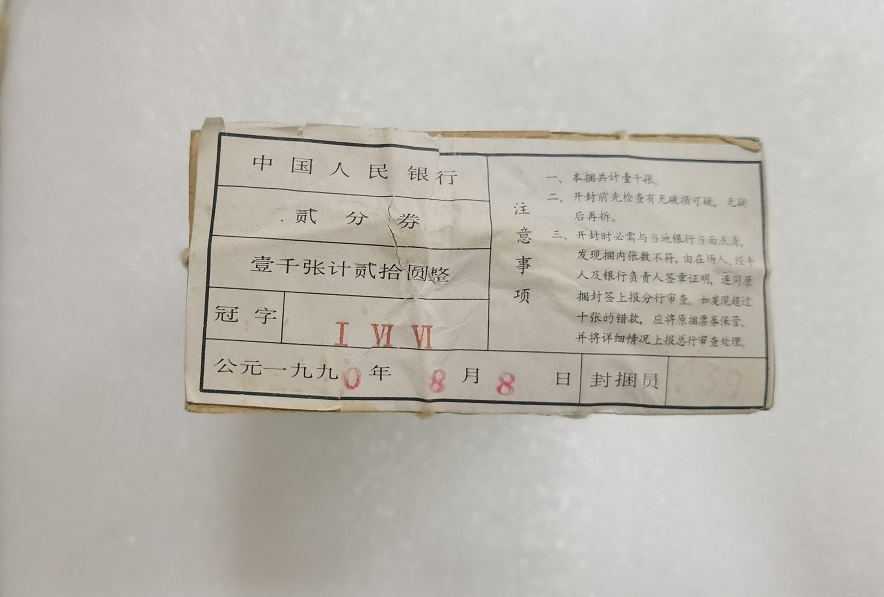 中国人民银行
贰分券
壹千张计贰拾圆整
冠字 Ⅰ Ⅵ Ⅵ
公元一九九0年8月8日 封捆员
注意事项
一、本捆共计壹千张。
二、开封前先检查有无破损可疑，无疑
后再拆。
三、开封时必需与当地银行当面点清，
发现捆内张数不符，由在场人、经手
人及银行负责人签章证明，连同原
捆封签上报分行审查。如发现超过
十张的错款，应将原捆票券保管、
并将详细情况上报总行审查处理。